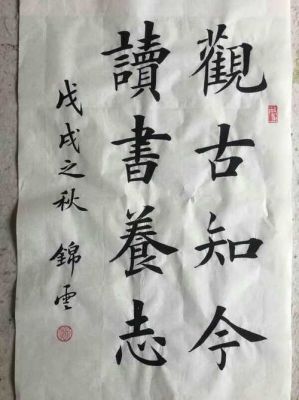 觀古知今
讀書養志
戊戌之秋 錦雲